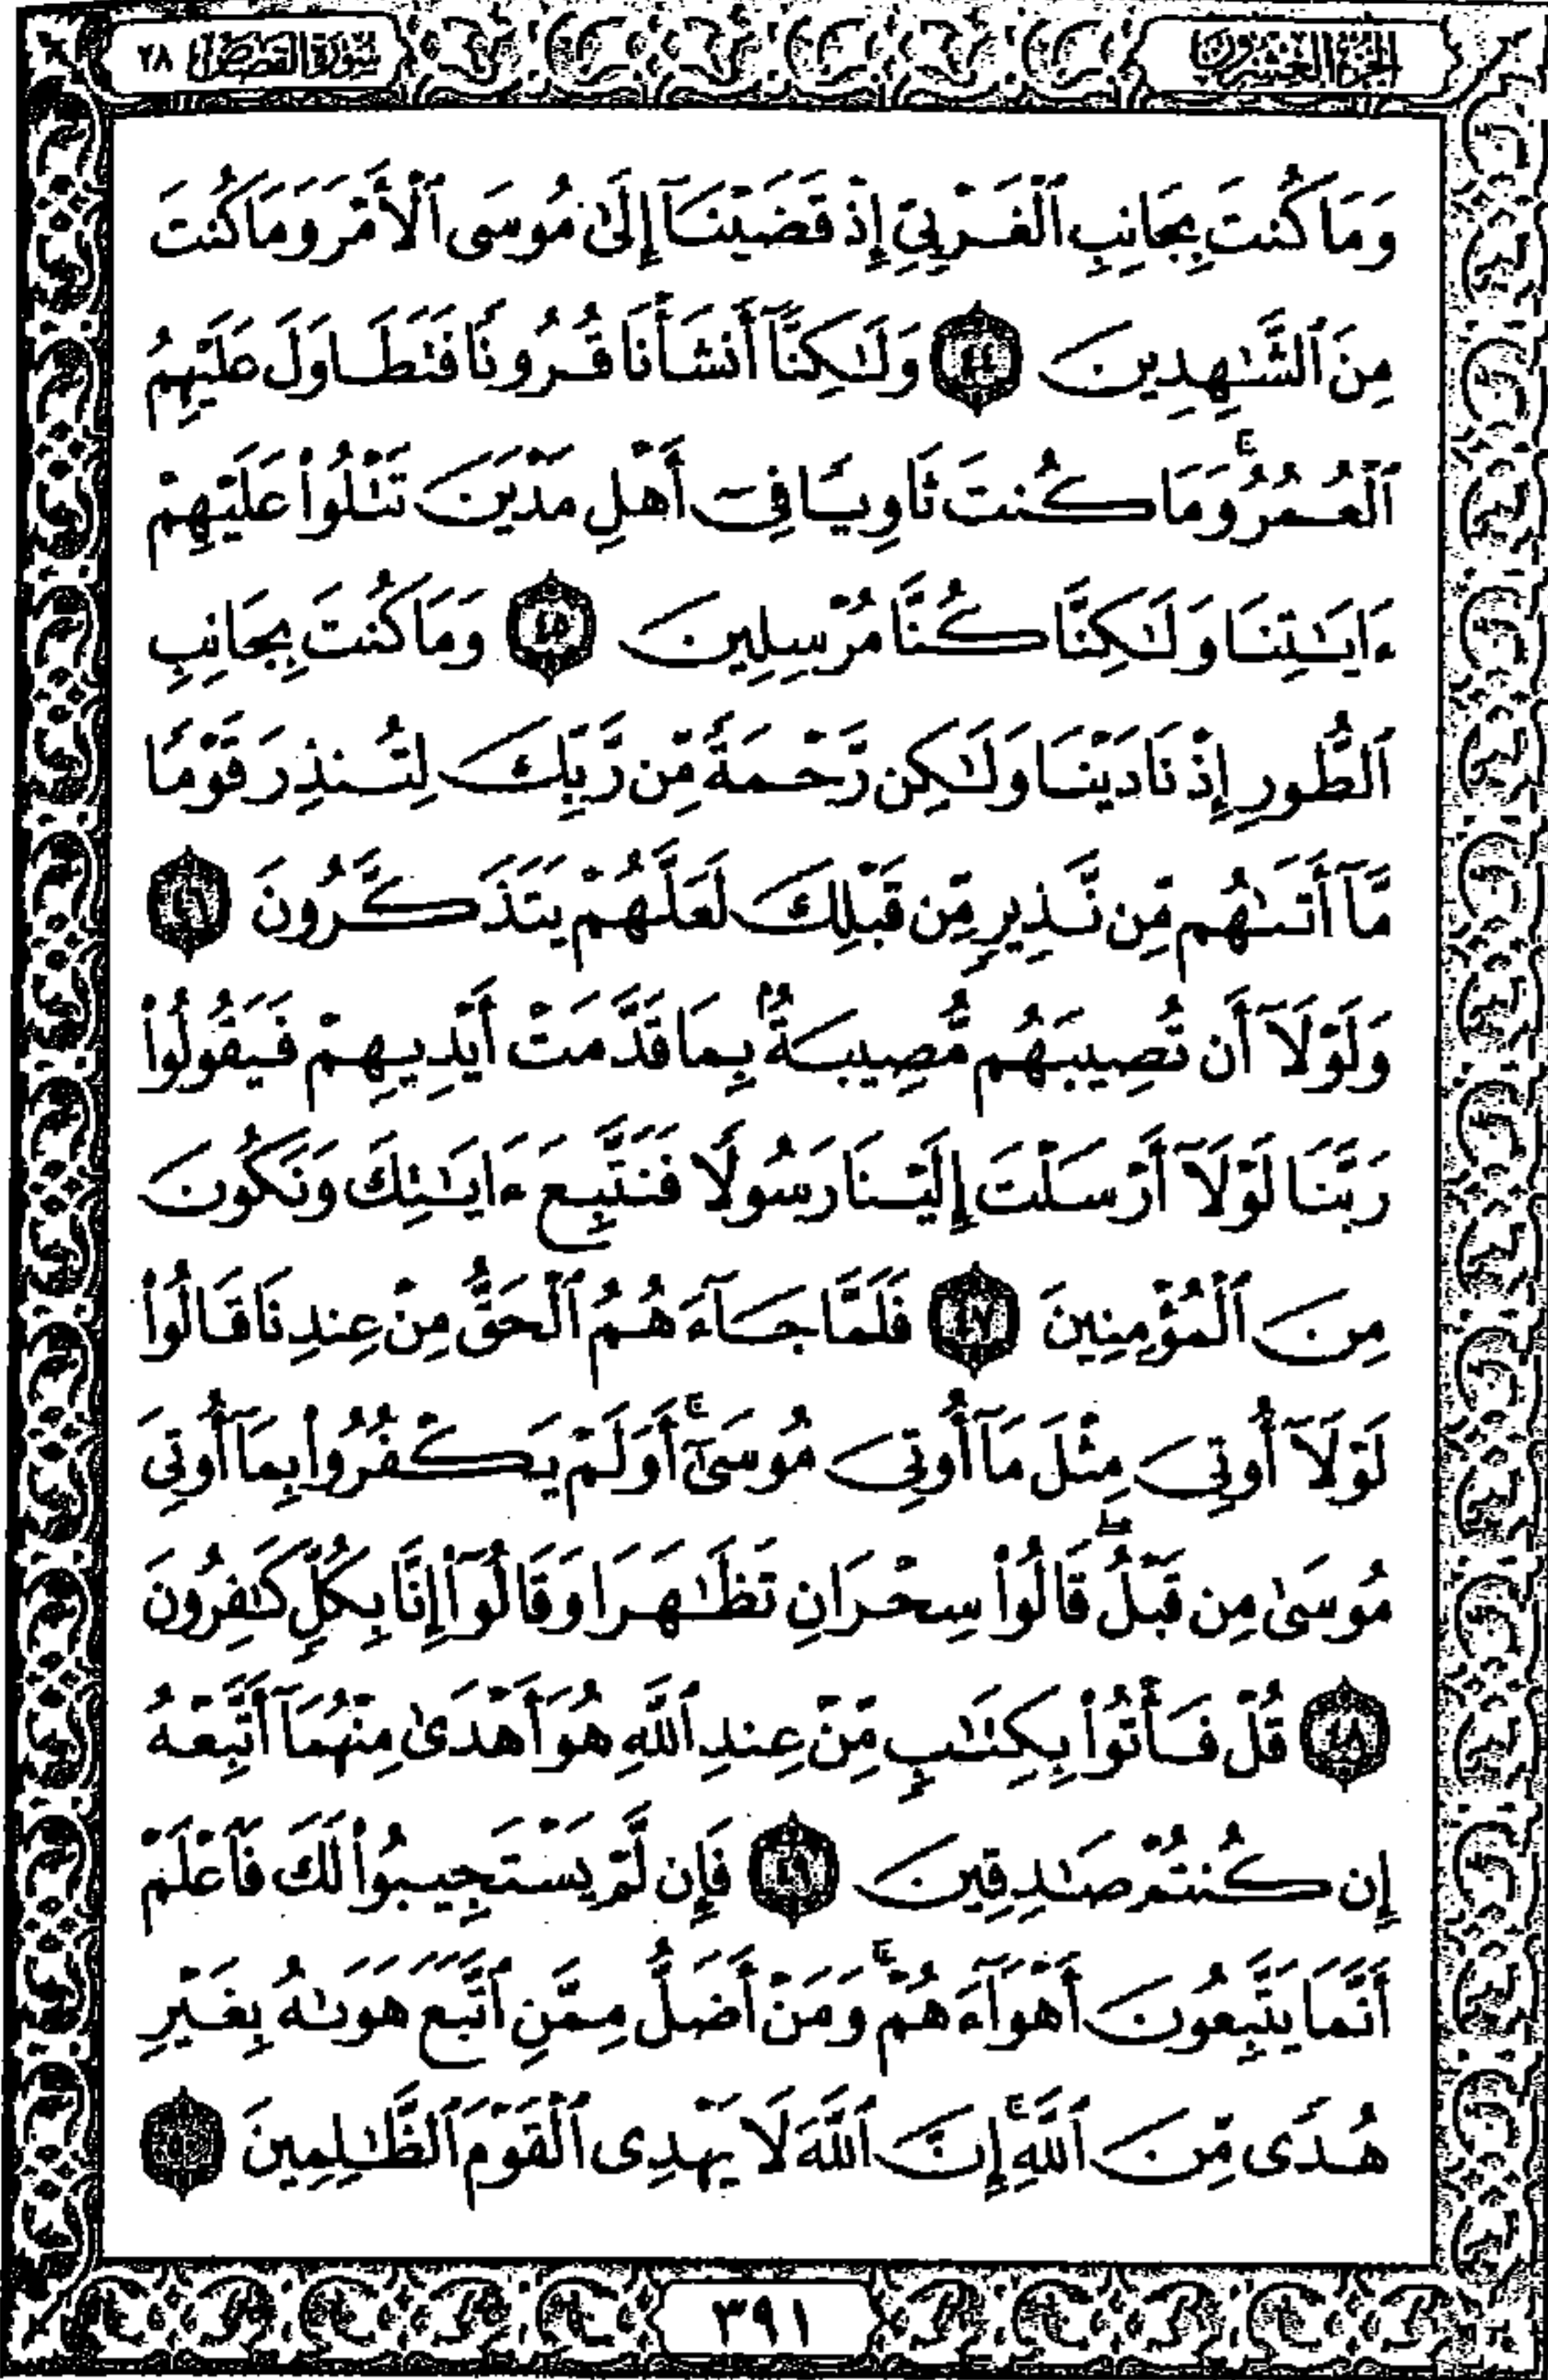 الجزء العشرون
سورة القصص ٢٨
وَمَا كُنتَ بِجَانِبِ ٱلْغَرْبِيِّ إِذْ قَضَيْنَآ إِلَىٰ مُوسَى ٱلْأَمْرَ وَمَا كُنتَ
مِنَ ٱلشَّٰهِدِينَ ٤٤ وَلَٰكِنَّآ أَنشَأْنَا قُرُونًا فَتَطَاوَلَ عَلَيْهِمُ
ٱلْعُمُرُ ۚ وَمَا كُنتَ ثَاوِيًا فِىٓ أَهْلِ مَدْيَنَ تَتْلُوا۟ عَلَيْهِمْ
ءَايَٰتِنَا وَلَٰكِنَّا كُنَّا مُرْسِلِينَ ٤٥ وَمَا كُنتَ بِجَانِبِ
ٱلطُّورِ إِذْ نَادَيْنَا وَلَٰكِن رَّحْمَةً مِّن رَّبِّكَ لِتُنذِرَ قَوْمًا
مَّآ أَتَىٰهُم مِّن نَّذِيرٍ مِّن قَبْلِكَ لَعَلَّهُمْ يَتَذَكَّرُونَ ٤٦
وَلَوْلَآ أَن تُصِيبَهُم مُّصِيبَةٌۢ بِمَا قَدَّمَتْ أَيْدِيهِمْ فَيَقُولُوا۟
رَبَّنَا لَوْلَآ أَرْسَلْتَ إِلَيْنَا رَسُولًا فَنَتَّبِعَ ءَايَٰتِكَ وَنَكُونَ
مِنَ ٱلْمُؤْمِنِينَ ٤٧ فَلَمَّا جَآءَهُمُ ٱلْحَقُّ مِنْ عِندِنَا قَالُوا۟
لَوْلَآ أُوتِىَ مِثْلَ مَآ أُوتِىَ مُوسَىٰٓ ۚ أَوَلَمْ يَكْفُرُوا۟ بِمَآ أُوتِىَ
مُوسَىٰ مِن قَبْلُ ۖ قَالُوا۟ سِحْرَانِ تَظَٰهَرَا وَقَالُوٓا۟ إِنَّا بِكُلٍّ كَٰفِرُونَ
٤٨ قُلْ فَأْتُوا۟ بِكِتَٰبٍ مِّنْ عِندِ ٱللَّهِ هُوَ أَهْدَىٰ مِنْهُمَآ أَتَّبِعْهُ
إِن كُنتُمْ صَٰدِقِينَ ٤٩ فَإِن لَّمْ يَسْتَجِيبُوا۟ لَكَ فَٱعْلَمْ
أَنَّمَا يَتَّبِعُونَ أَهْوَآءَهُمْ ۚ وَمَنْ أَضَلُّ مِمَّنِ ٱتَّبَعَ هَوَىٰهُ بِغَيْرِ
هُدًى مِّنَ ٱللَّهِ ۚ إِنَّ ٱللَّهَ لَا يَهْدِى ٱلْقَوْمَ ٱلظَّٰلِمِينَ ٥٠
٣٩١